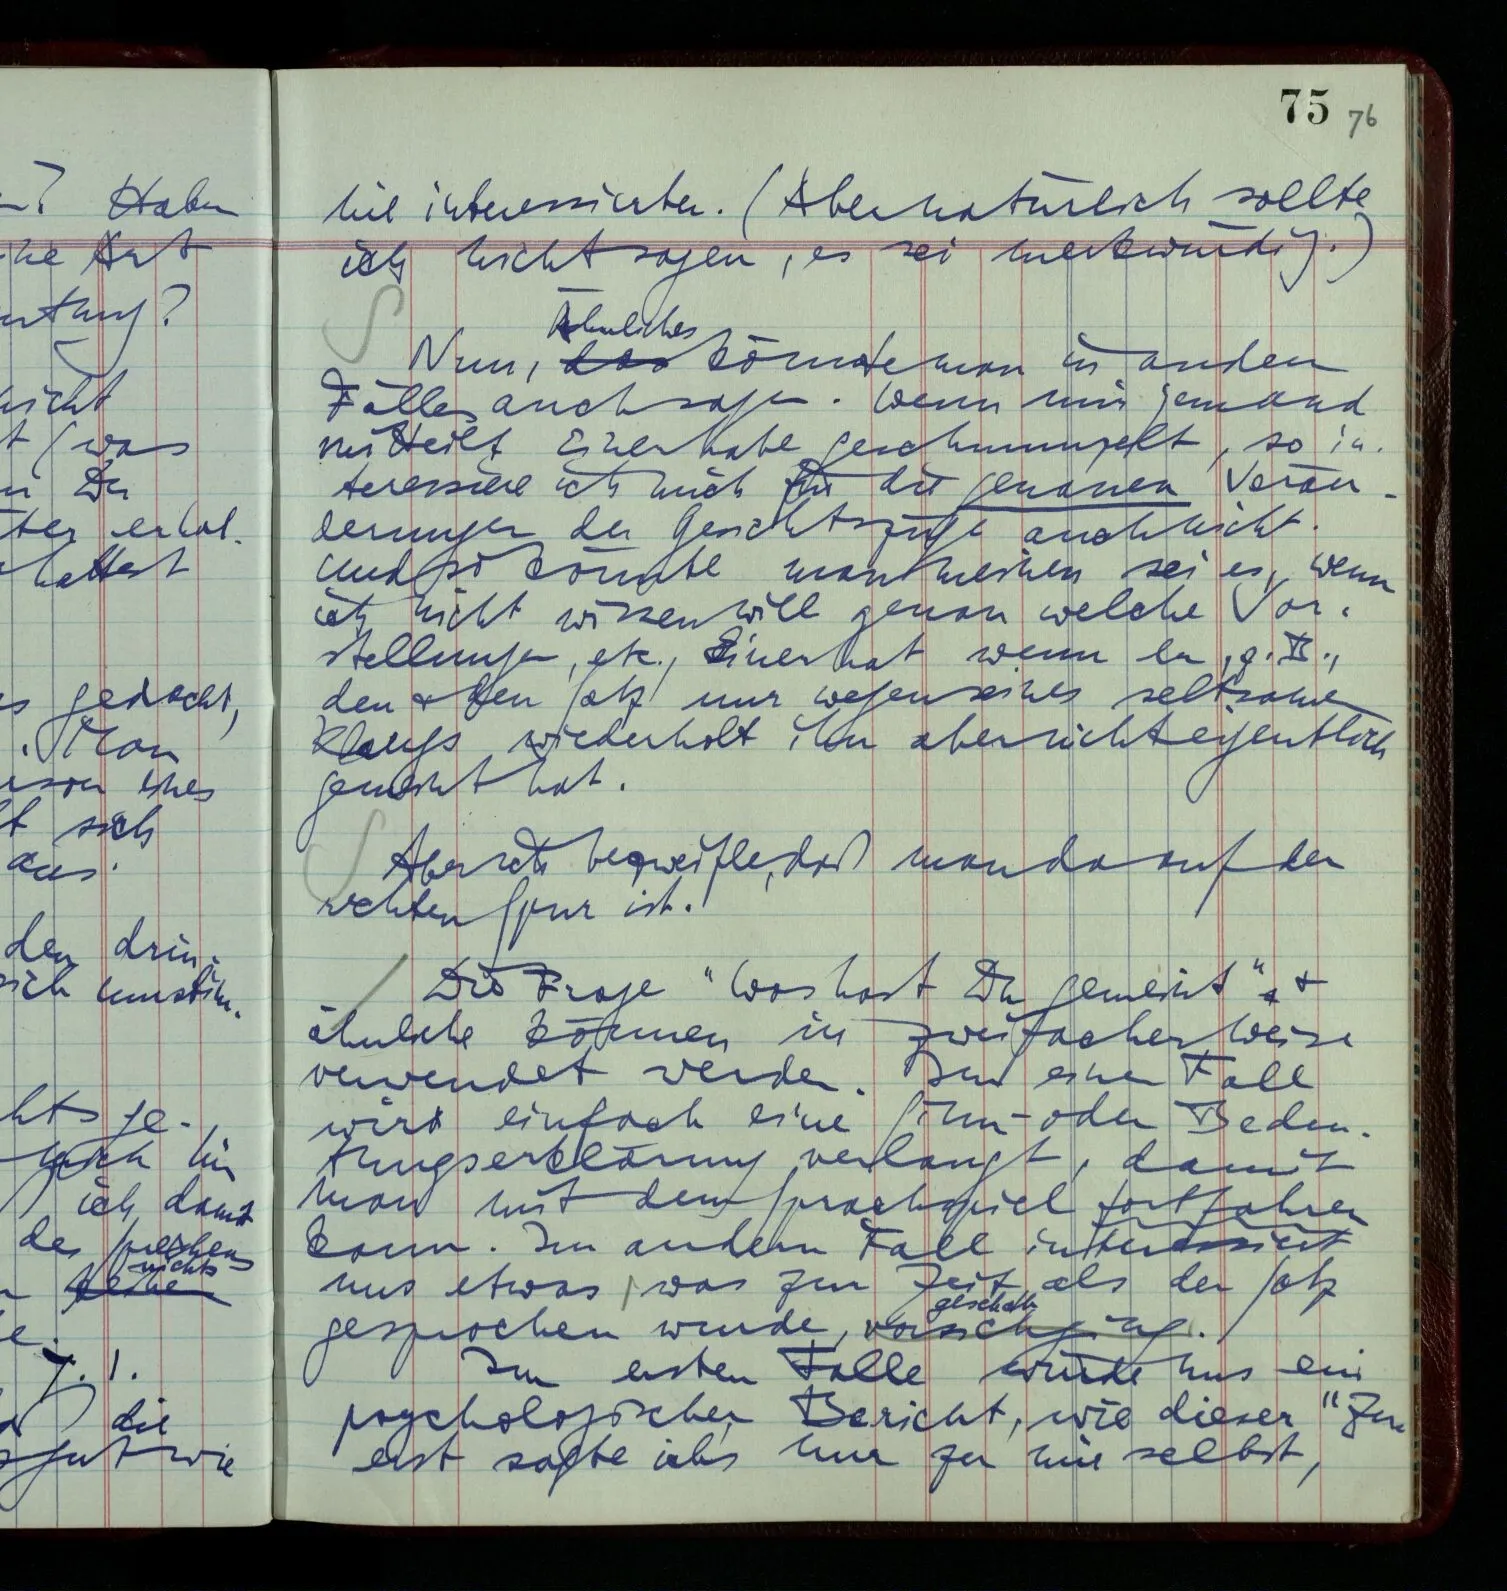 n? Haben
ine Art
utung?
nicht
t (was
n Du
ter erhal-
hattest
s gedacht,
. Man
eines
t sich
aus.
den drin-
sich umstim-
chts ge-
mich hin
ich damit
des Sprechens
nichts
e.
z.B.
die
gut wie
75 76
hie interessierten. (Aber natürlich sollte
ich nicht sagen, es sei merkwürdig.)
Ähnliches
Nun, das könnte man in anden
Fällen auch sagen. Wenn mir jemand
mitteilt Einer habe geschmunzelt, so in-
teressiere ich mich für die genauen Verän-
derungen der Gesichtszüge auch nicht.
Und so könnte man meinen sei es, wenn
ich nicht wissen will genau welche Vor-
stellungen, etc., Einer hat wenn er, z.B.,
den & den Satz nur wegen seines seltsamen
Klangs wiederholt ihn aber nicht eigentlich
gemeint hat.
Aber ich bezweifle, daß man da auf der
rechten Spur ist.
Die Frage "Was hast Du gemeint" &
ähnliche können in zweifacher Weise
verwendet werden. Im einen Fall
wird einfach eine Sinn- oder Bedeu-
tungserklärung verlangt, damit
man mit dem Sprachspiel fortfahren
kann. Im andern Fall interessiert
uns etwas, was zur Zeit als der Satz
geschah
gesprochen wurde, vor sich ging.
Im ersten Falle würde uns ein
psychologischer Bericht, wie dieser "Zu-
erst sagte ich's nur zu mir selbst,